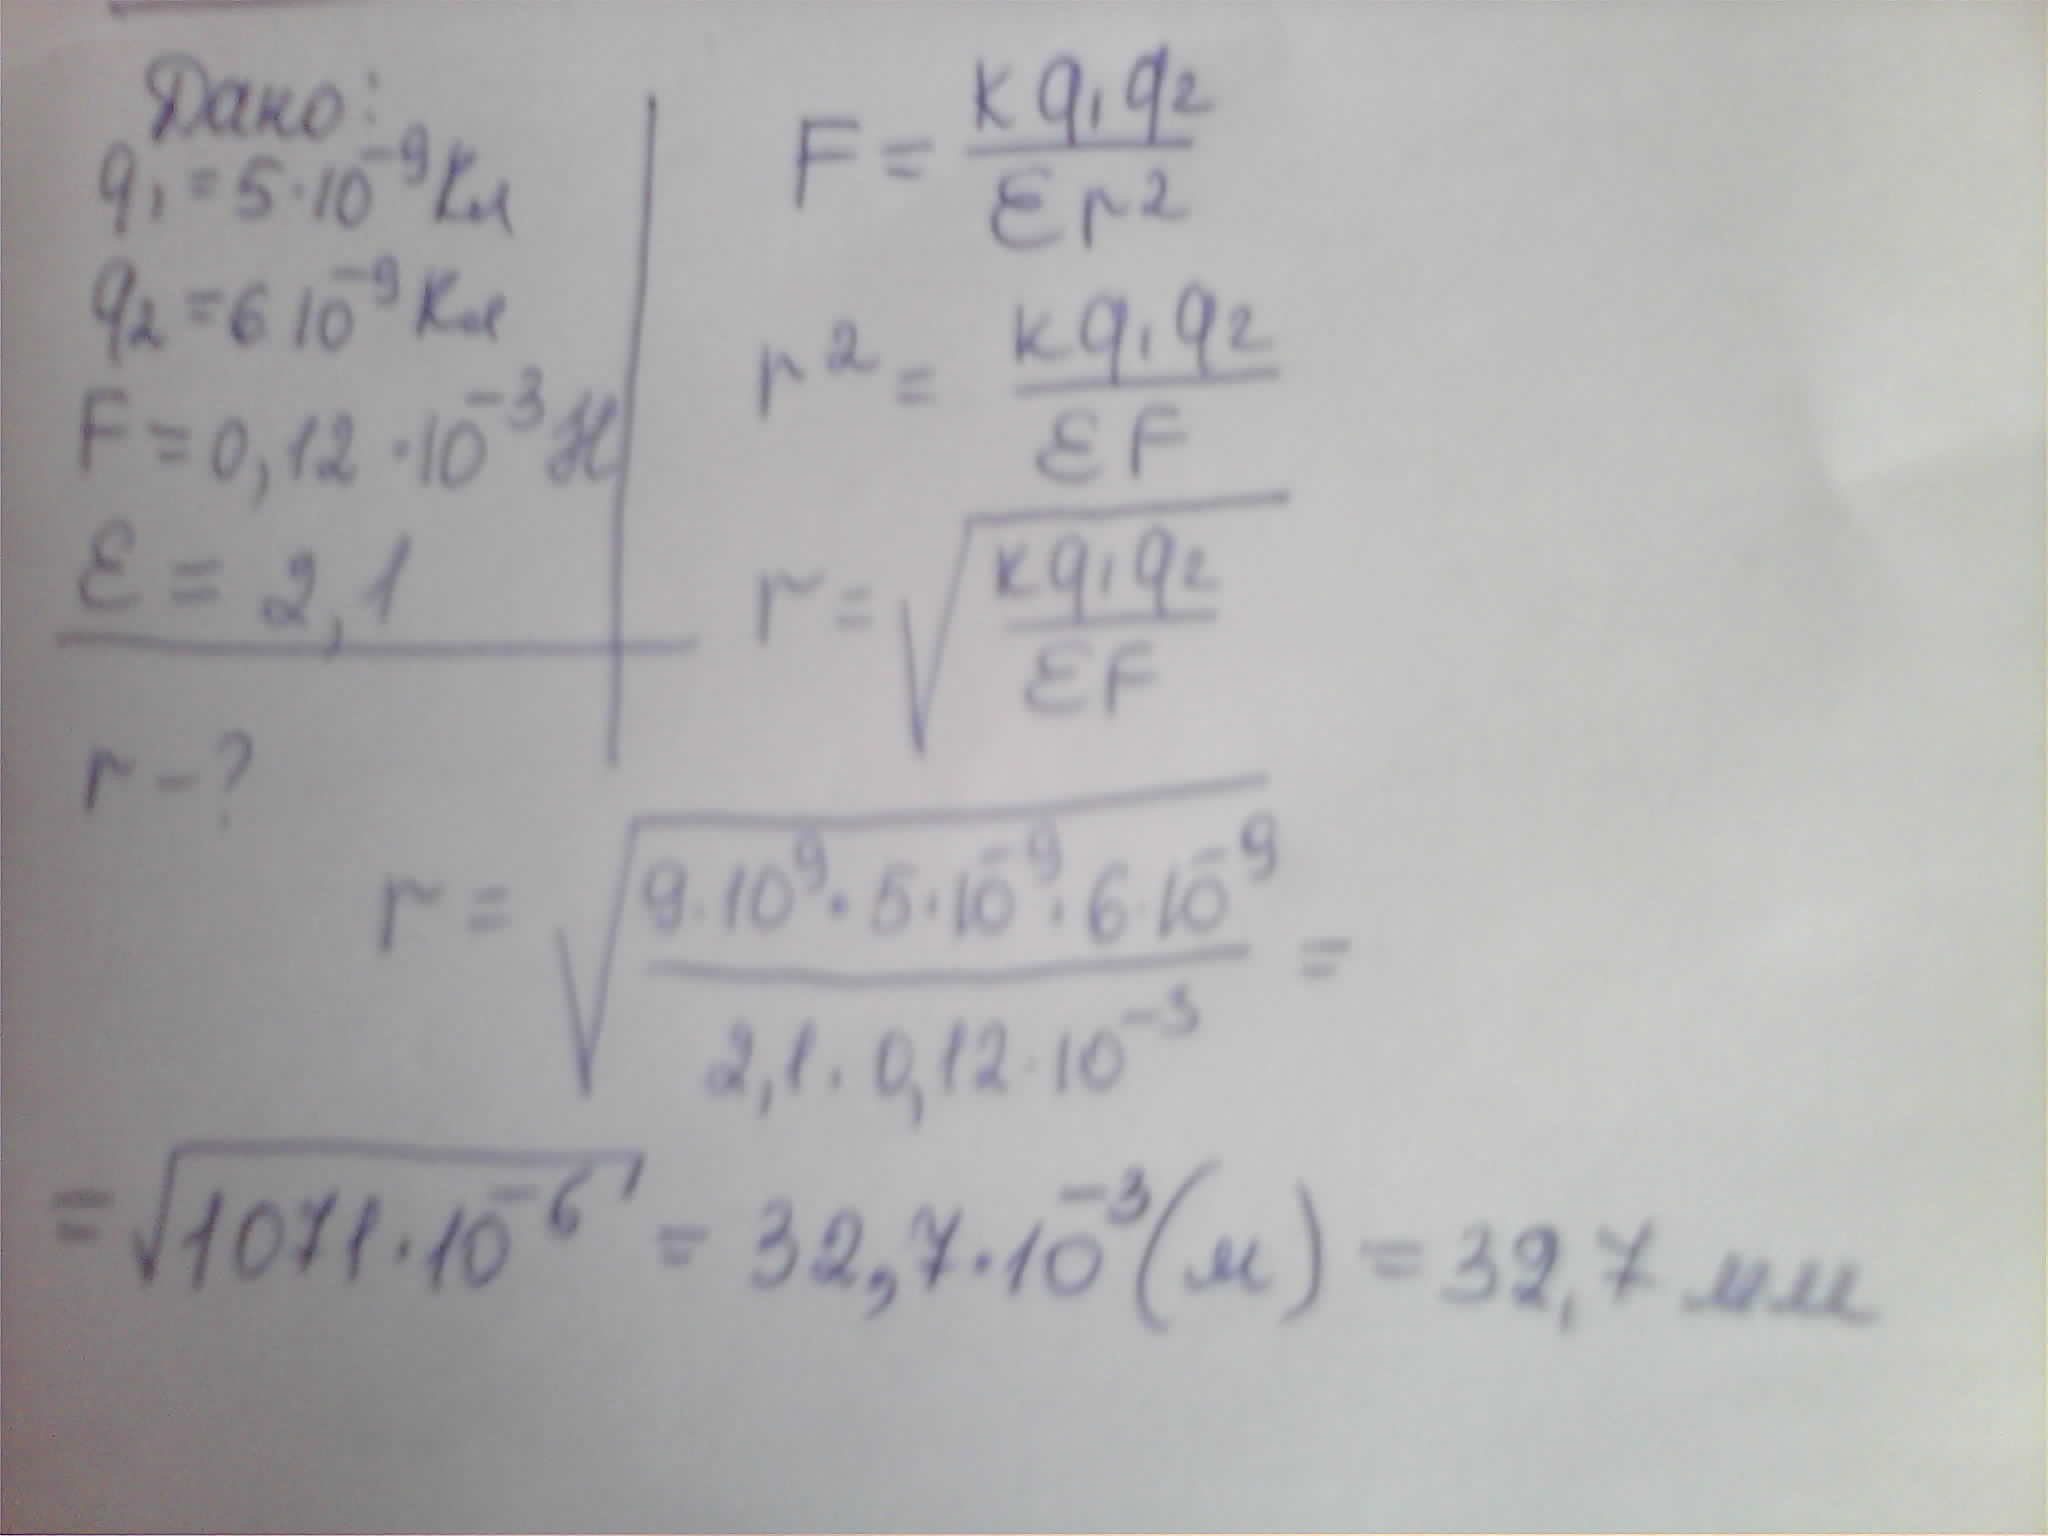 Дано:
q₁ = 5·10⁻⁹ Кл
q₂ = 6 10⁻⁹ Кл
F = 0,12·10⁻³ Н
ε = 2,1
r - ?
F = kq₁q₂ / εr²
r² = kq₁q₂ / εF
r = √(kq₁q₂ / εF)
r = √(9·10⁹·5·10⁻⁹·6·10⁻⁹ / 2,1·0,12·10⁻³) =
= √(1071·10⁻⁶) = 32,7·10⁻³ (м) = 32,7 мм